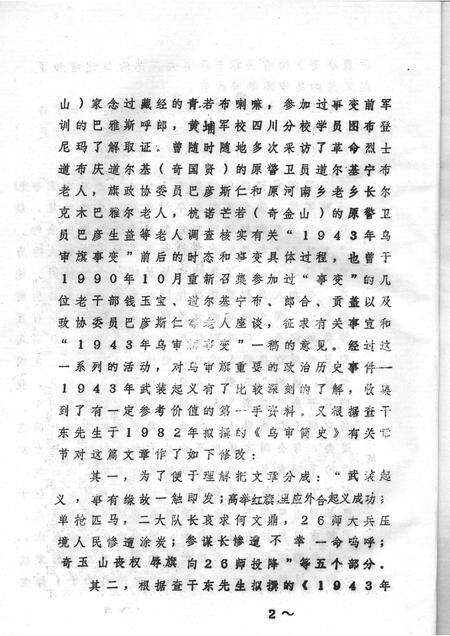 山）家念过藏经的青若布喇嘛，参加过事变前军
训的巴雅斯呼郎，黄埔军校四川分校学员图布登
尼玛了解取证。曾随时随地多次采访了革命烈士
道布庆道尔基（奇国贤）的原警卫员道尔基宁布
老人，旗政协委员巴彦斯仁和原河南乡老乡长尔
克木巴雅尔老人，杭诺芒若（奇金山）的原警卫
员巴彦生益等老人调查核实有关“1943年乌
审旗事变”前后的时态和事变具体过程，也曾于
1990年10月重新召集参加过“事变”的几
位老干部钱玉宝、道尔基宁布、郎合、贡董以及
政协委员巴彦斯仁等老人座谈，征求有关事宜和
“1943年乌审旗事变”一稿的意见。经过这
一系列的活动，对乌审旗重要的政治历史事件—
1943年武装起义有了比较深刻的了解，收集
到了有一定参考价值的第一手资料。又根据查干
东先生于1982年拟撰的《乌审简史》有关章
节对这篇文章作了如下修改：
其一，为了便于理解把文章分成：“武装起
义，事有缘故一触即发；高举红旗，里应外合起义成功；
单枪匹马，二大队长哀求何文鼎，26师大兵压
境人民惨遭涂炭；参谋长惨遭不幸一命呜呼；
奇玉山丧权辱旗向26师投降”等五个部分。
其二，根据查干东先生拟撰的《1943年
2～